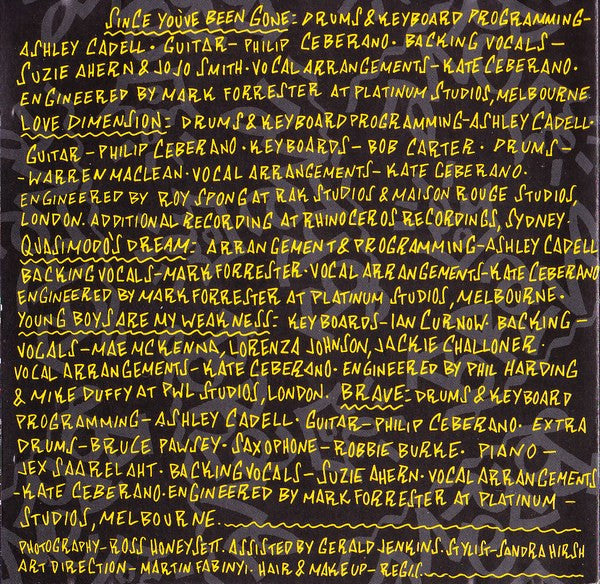 SINCE YOU'VE BEEN GONE: DRUMS & KEYBOARD PROGRAMMING-
ASHLEY CADELL · GUITAR - PHILIP CEBERANO · BACKING VOCALS -
SUZIE AHERN & JOJO SMITH · VOCAL ARRANGEMENTS - KATE CEBERANO ·
ENGINEERED BY MARK FORRESTER AT PLATINUM STUDIOS, MELBOURNE
LOVE DIMENSION: DRUMS & KEYBOARD PROGRAMMING - ASHLEY CADELL ·
GUITAR - PHILIP CEBERANO · KEYBOARDS - BOB CARTER · DRUMS -
- WARREN MACLEAN · VOCAL ARRANGEMENTS - KATE CEBERANO ·
ENGINEERED BY ROY SPONG AT RAK STUDIOS & MAISON ROUGE STUDIOS,
LONDON. ADDITIONAL RECORDING AT RHINOCEROS RECORDINGS, SYDNEY ·
QUASIMODO'S DREAM: ARRANGEMENT & PROGRAMMING - ASHLEY CADELL
BACKING VOCALS - MARK FORRESTER · VOCAL ARRANGEMENTS - KATE CEBERANO
ENGINEERED BY MARK FORRESTER AT PLATINUM STUDIOS, MELBOURNE ·
YOUNG BOYS ARE MY WEAKNESS: KEYBOARDS - IAN CURNOW · BACKING -
VOCALS - MAE MCKENNA, LORENZA JOHNSON, JACKIE CHALLONER ·
VOCAL ARRANGEMENTS - KATE CEBERANO · ENGINEERED BY PHIL HARDING
& MIKE DUFFY AT PWL STUDIOS, LONDON. BRAVE: DRUMS & KEYBOARD
PROGRAMMING - ASHLEY CADELL · GUITAR - PHILIP CEBERANO · EXTRA
DRUMS - BRUCE PAWSEY · SAXOPHONE - ROBBIE BURKE · PIANO -
JEX SAARELAHT · BACKING VOCALS - SUZIE AHERN · VOCAL ARRANGEMENTS
- KATE CEBERANO · ENGINEERED BY MARK FORRESTER AT PLATINUM -
STUDIOS, MELBOURNE.
PHOTOGRAPHY - ROSS HONEYSETT. ASSISTED BY GERALD JENKINS. STYLIST - SANDRA HIRSH
ART DIRECTION - MARTIN FABINYI. HAIR & MAKEUP - REGIS.